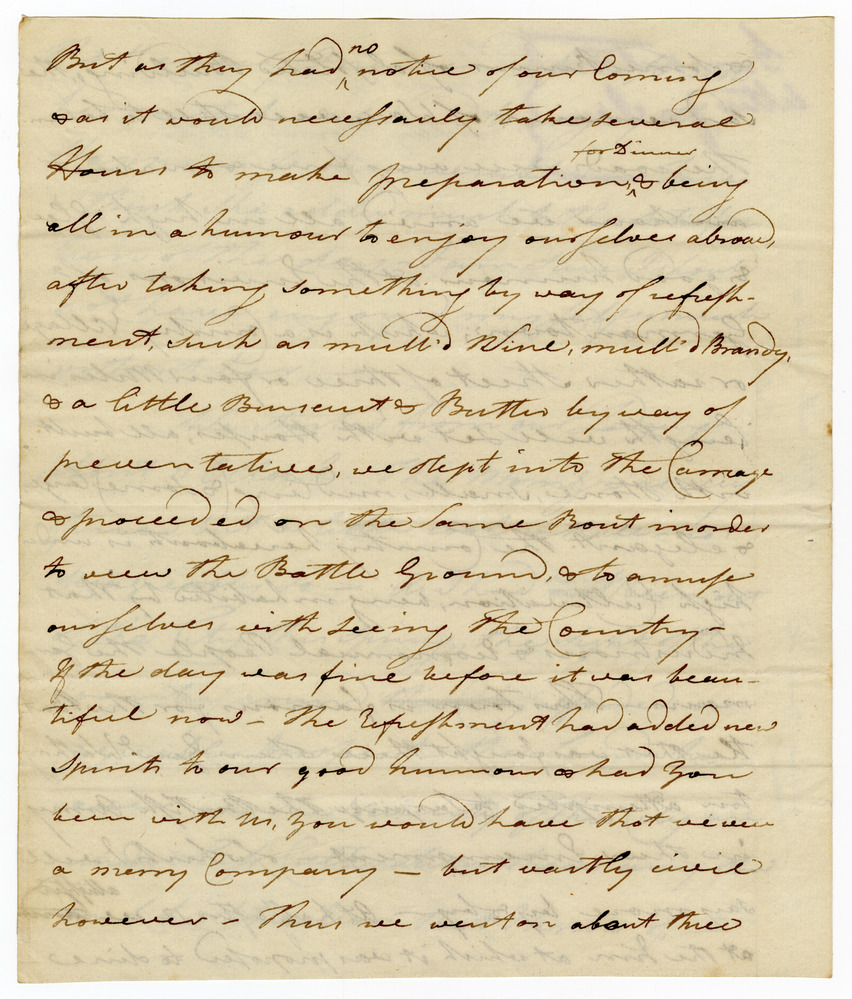 But as they had no notice of our Coming
& as it would necessarily take several
Hours to make preparation for Dinner, & being
all in a humour to enjoy ourselves abroad,
after taking something by way of refresh-
ment, such as mull'd Wine, mull'd Brandy,
& a little Buiscuit & Butter by way of
preventative, we stept into the Carriage
& proceeded on the same Rout in order
to view the Battle Ground, & to amuse
ourselves with seeing the Country-
If the day was fine before it was beau-
tiful now - the refreshment had added new
spirits to our good humour & had you
been with us, you would have that we were
a merry Company - but vastly civil
however - Thus we went on about three